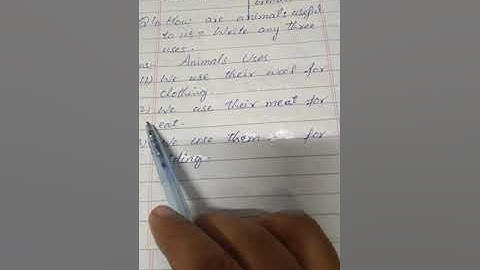 Q4. How are animals useful
to us? Write any three
uses.
Ans: Animals Uses
(1) We use their wool for
clothing.
(2) We use their meat for
eat.
We use them for